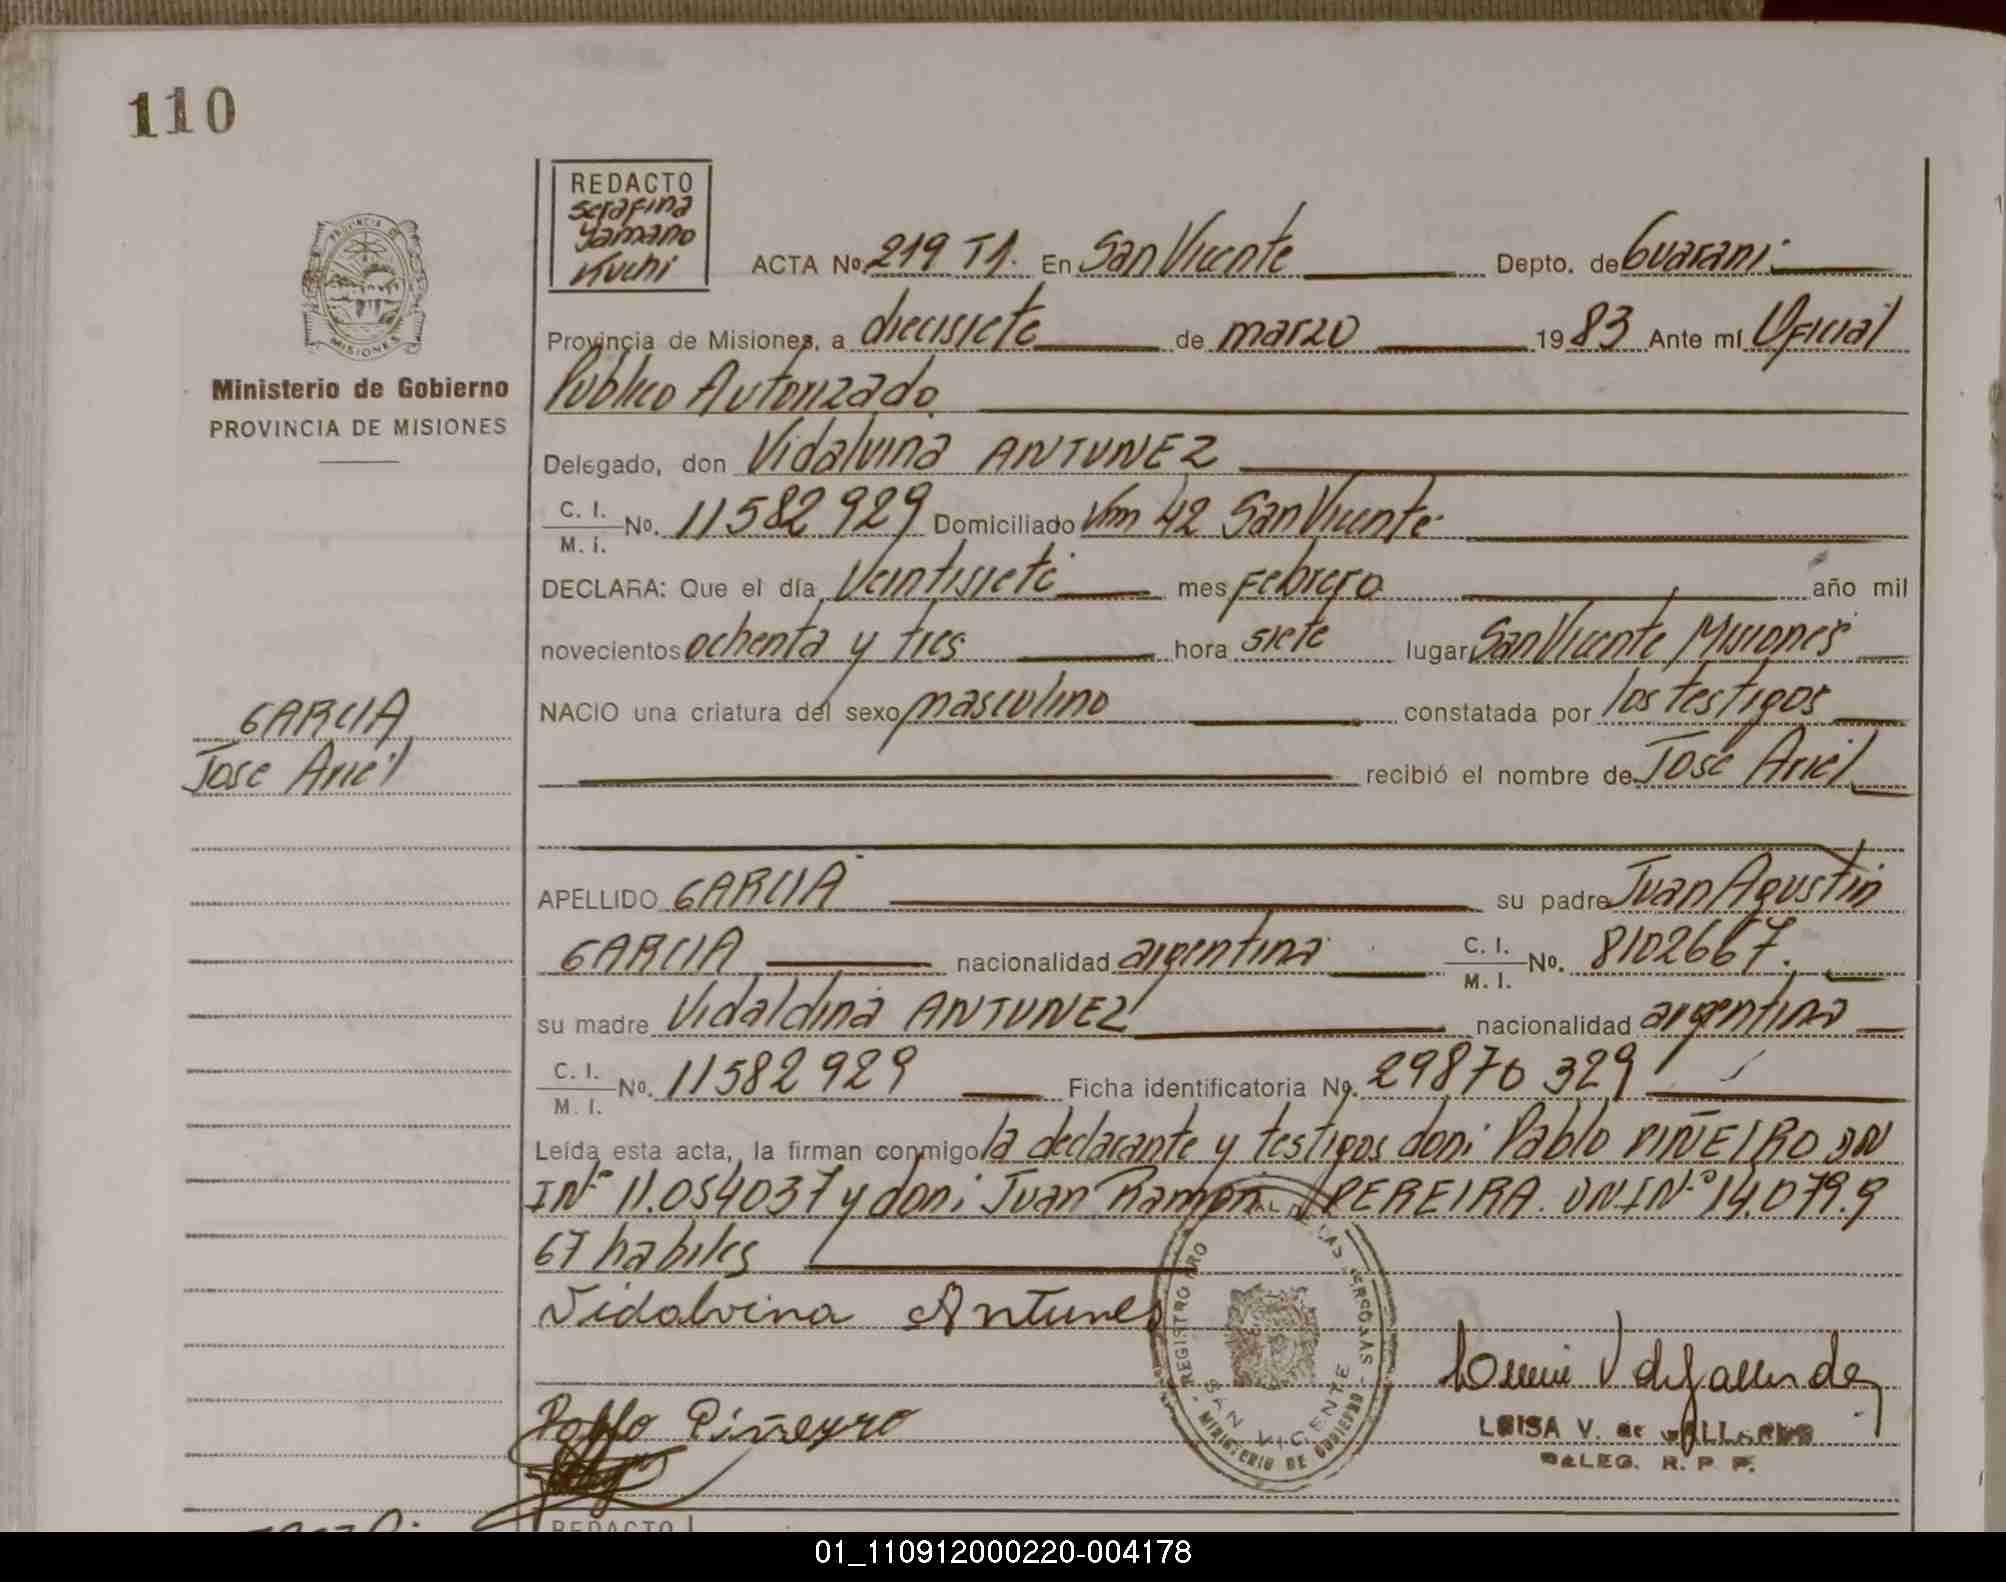 110
REDACTO
Serafina
Yamano
Kuchi
PROVINCIA DE
MISIONES
Ministerio de Gobierno
PROVINCIA DE MISIONES
ACTA No. 219 T1. En San Vicente Depto. de Guarani
Provincia de Misiones, a diecisiete de marzo 1983 Ante mí Oficial
Público Autorizado
Delegado, don Vidalvina ANTUNEZ
C. I. / M. I. No. 11582929 Domiciliado Km 42 San Vicente
DECLARA: Que el día Veintisiete mes Febrero año mil
novecientos ochenta y tres hora siete lugar San Vicente Misiones
NACIO una criatura del sexo masculino constatada por los testigos
GARCIA
Jose Ariel
recibió el nombre de José Ariel
APELLIDO GARCIA su padre Juan Agustin
GARCIA nacionalidad argentina C. I. / M. I. No. 8102667.
su madre Vidaldina ANTUNEZ nacionalidad argentina
C. I. / M. I. No. 11582929 Ficha identificatoria No. 29870329
Leída esta acta, la firman conmigo la declarante y testigos doni Pablo PIÑEIRO DN
I Nº 11.054037 y doni Juan Ramon PEREIRA. DNI Nº 14.079.9
67 habiles
Vidalvina Antunes
Pablo Piñeyro
REGISTRO
DE LAS PERSONAS
SAN VICENTE
MINISTERIO DE GOBIERNO
LUISA V. de
DELEG. R. P. P.
REDACTO
01_110912000220-004178